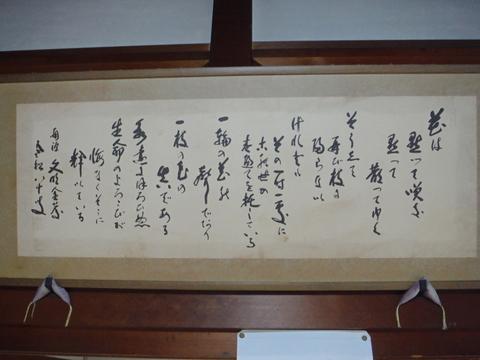 花は
黙って咲き
黙って
散ってゆく
そうして
再び枝に
帰らない
けれども
その一時一處に
この世の
すべてを托している
一輪の花の
聲であり
一枝の花の
真である
永遠にほろびぬ
生命のよろこびが
悔なくそこに
輝いている